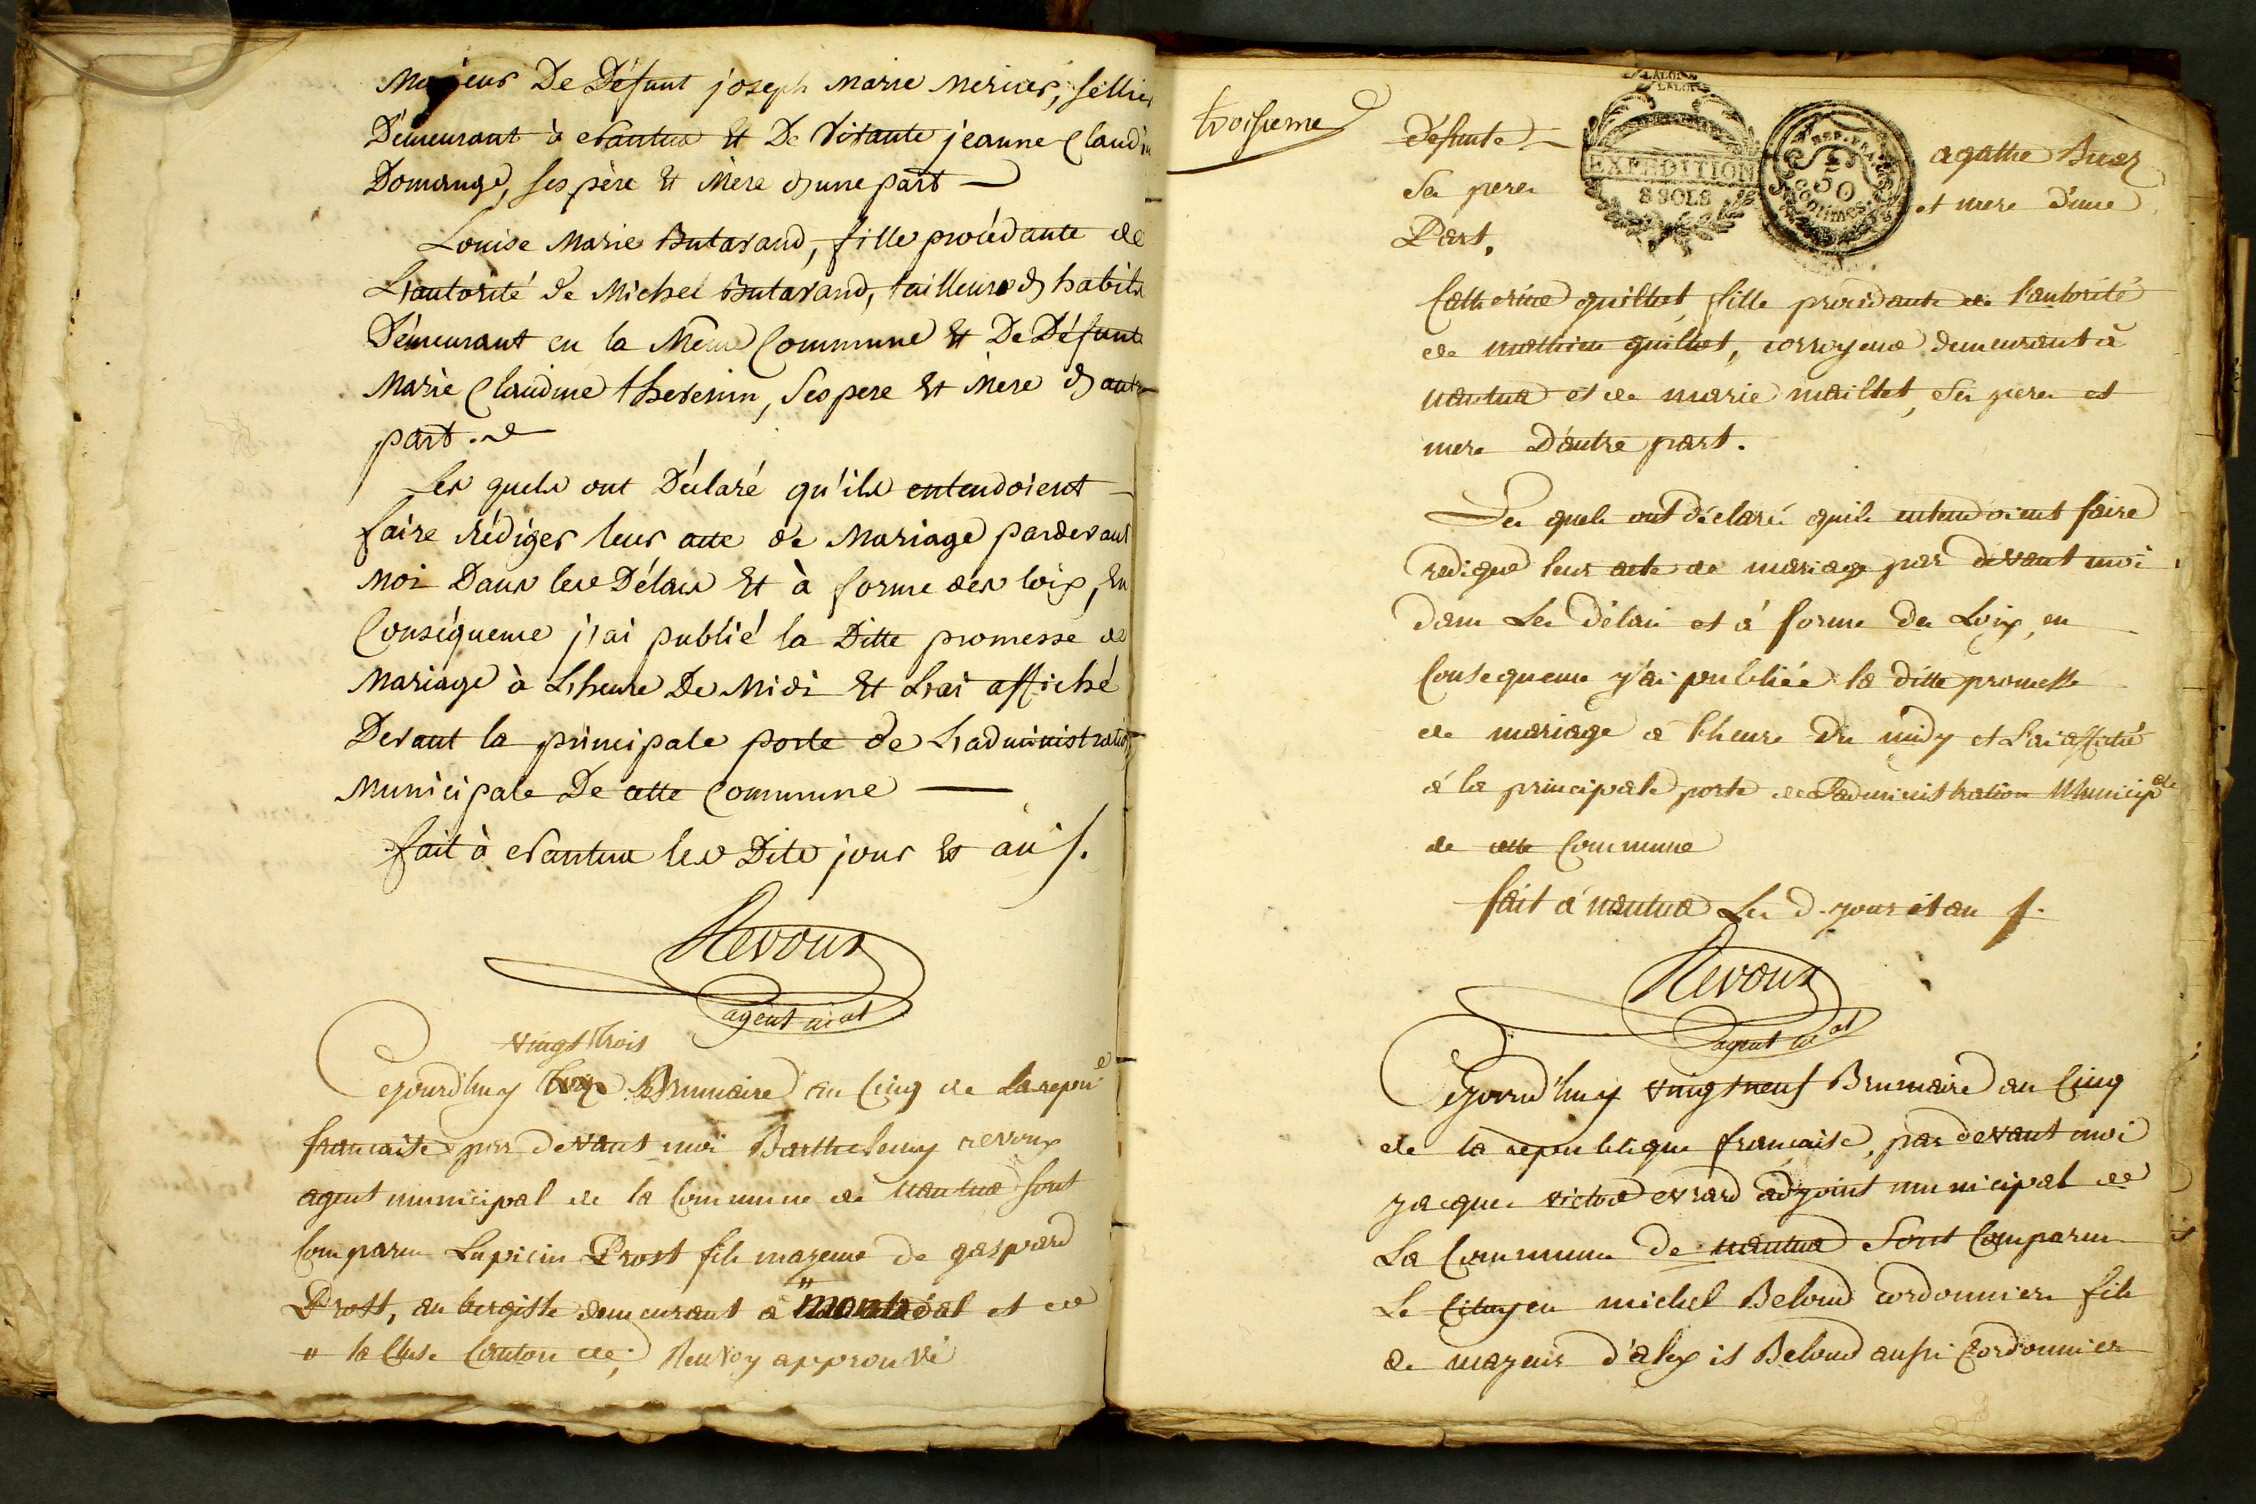 Majeur De Défunt joseph Marie Mercier, sellier
Démeurant à Nantua Et De Vivante jeanne Claudin
Domange, ses père Et Mère d'une part
Louise Marie Butavand, fille procédante de
L'autorité de Michel Butavand, tailleur d'habits
Démeurant en la Même Commune Et De Défunte
Marie Claudine thevenin, Ses pere Et Mere d'autre
part.
Les quels ont Déclaré qu'ils entendoient
faire rédiger leur acte de Mariage pardevant
Moi Dans les Délais Et à forme des loix, En
Conséquence j'ai publié la Ditte promesse de
Mariage à L'heure De Midi Et L'ai affiché
Devant la principale porte de L'administration
Municipale De cette Commune
fait à Nantua les Dits jour Et an s.
Revoux
agent m.al
vingt trois
Cejourd'huy Brumaire an Cinq de La repu.e
francaise par devant moi Barthelemy revoux
agent municipal de la Commune de Nantua sont
Comparus Lupicin Prost fils mayeur de gaspard
Prost, aubergiste demeurant a " montréal et de
" la Cluse Canton de; Renvoy approuvé
troisieme
défunte
LALOI
LALOI
EXPEDITION
8 SOLS
REP. FRA.
50
centimes
agathe Buez
Ses peres
et mere d'une
Part.
Catherine guillet, fille procidante de l'autorité
de mathieu guillet, corroyeur demeurant à
nantua et de marie maillet, Ses peres et
mere D'autre part.
Les quels ont déclaré quils entendoient faire
rediger leur acte de mariage par devant moi
dans Les délais et á forme des Loix, en
Consequence y'ai publiée la ditte promesse
de mariage a l'heure du midy et L'ai affiché
á la principale porte de L'administration Municip.ale
de cette Commune
fait a nantua Les d. jour et an s.
Revoux
agent m.al
Cejourd'huy vingt neuf Brumaire an Cinq
de la republique francaise, par devant moi
jacques victor evrard adjoint municipal de
La Commune de nantua Sont Comparus
Le Citoyen michel Beloud cordonniers fils
de mayeur d'alexis Beloud aussi Cordonnier